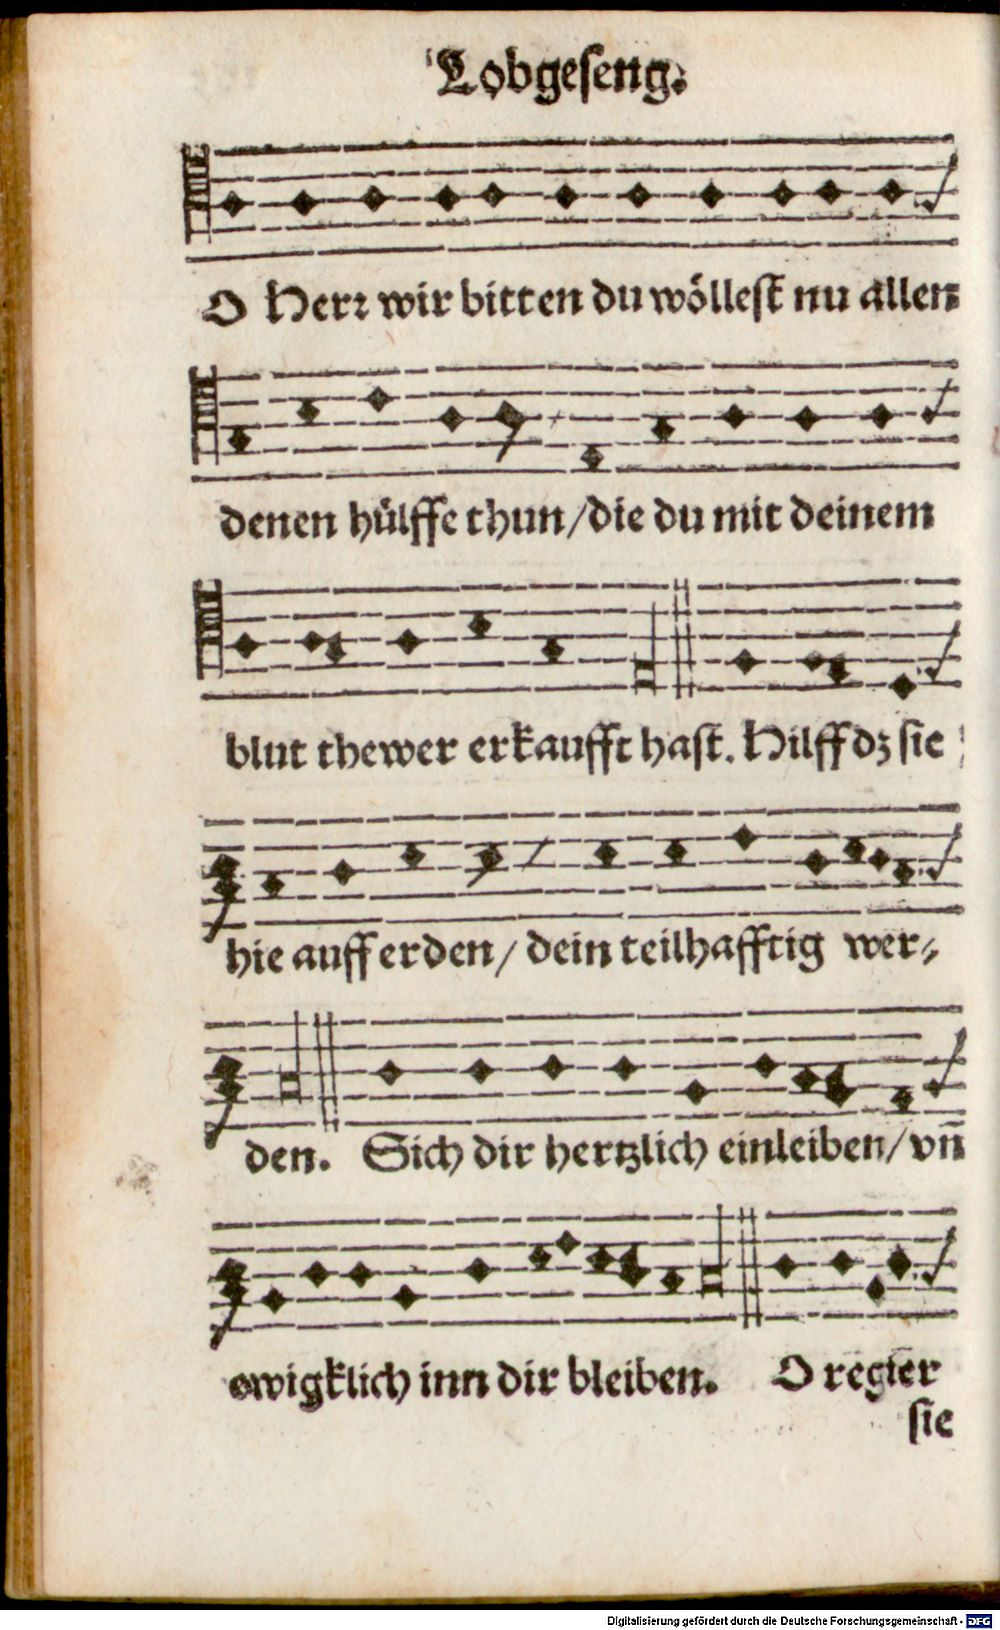 Lobgeseng.
O Herꝛ wir bitten du wöllest nu allen
denen hülffe thun/die du mit deinem
blut thewer erkaufft hast. Hilff dz sie
hie auff erden/ dein teilhafftig wer⸗
den. Sich dir hertzlich einleiben/ vñ
ewigklich inn dir bleiben. O regier
sie
Digitalisierung gefördert durch die Deutsche Forschungsgemeinschaft - DFG